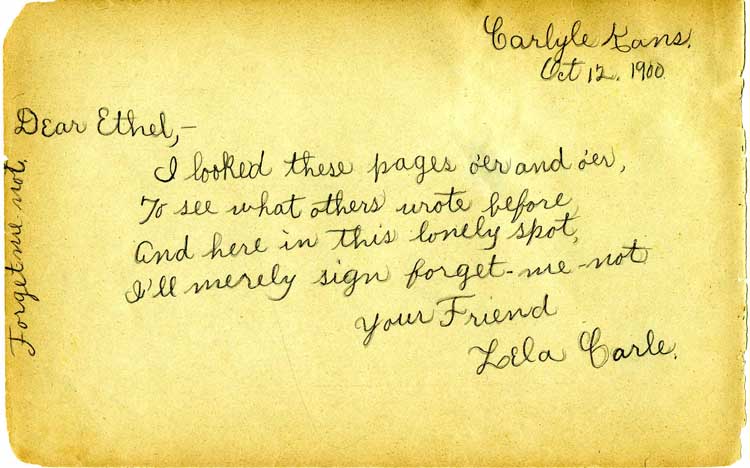 Carlyle Kans.
Oct 12. 1900
Dear Ethel,-
I looked these pages o'er and o'er,
To see what others wrote before
And here in this lonely spot,
I'll merely sign forget-me-not
Your Friend
Lela Carle.
Forget me not.